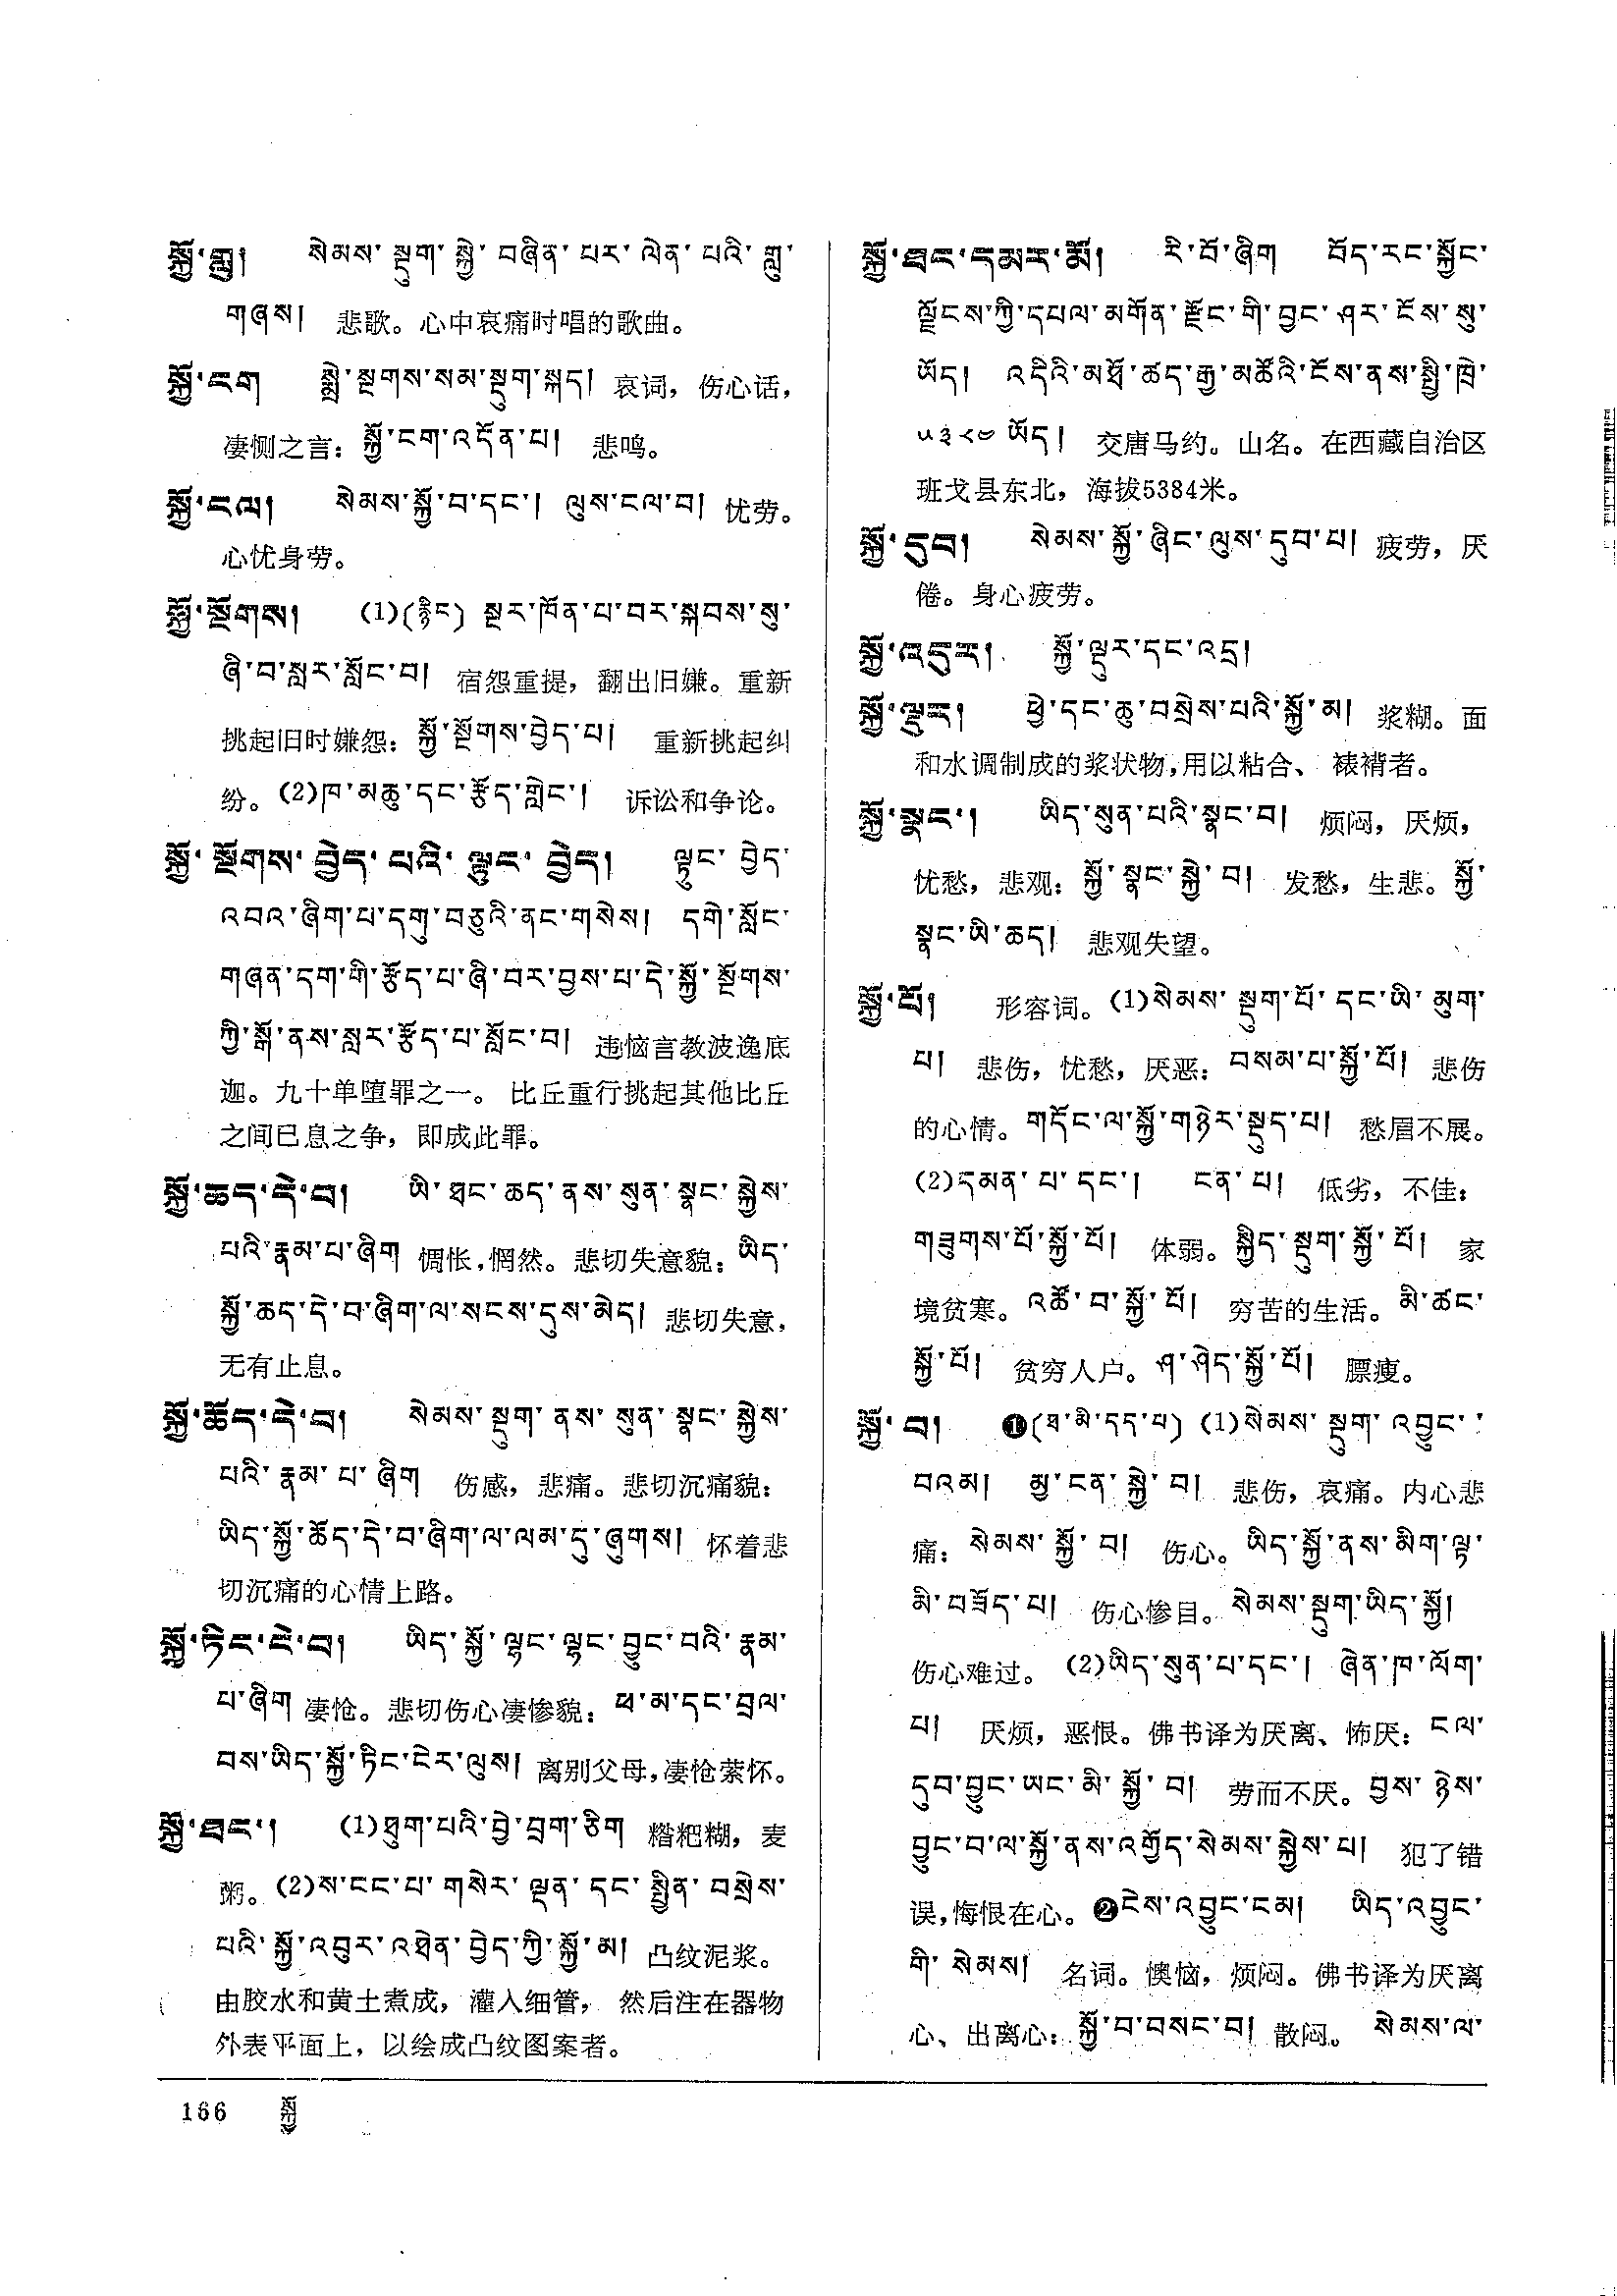 སྐྱོ་གླུ། སེམས་སྡུག་སྐྱེ་བཞིན་པར་ལེན་པའི་གླུ་
གཞས། 悲歌。心中哀痛时唱的歌曲。
སྐྱོ་ངག སྨྲེ་སྔགས་སམ་སྡུག་སྐད། 哀词，伤心话，
凄恻之言：སྐྱོ་ངག་འདོན་པ། 悲鸣。
སྐྱོ་ངལ། སེམས་སྐྱོ་བ་དང་། ལུས་ངལ་བ། 忧劳。
心忧身劳。
སྐྱོ་སྔོགས། (1)(རྙིང) སྔར་ཁོན་པ་བར་སྐབས་སུ་
ཞི་བ་སླར་སློང་བ། 宿怨重提，翻出旧嫌。重新
挑起旧时嫌怨：སྐྱོ་སྔོགས་བྱེད་པ། 重新挑起纠
纷。(2)ཁ་མཆུ་དང་རྩོད་གླེང་། 诉讼和争论。
སྐྱོ་སྔོགས་བྱེད་པའི་ལྟུང་བྱེད། ལྟུང་བྱེད་
འབའ་ཞིག་པ་དགུ་བཅུའི་ནང་གསེས། དགེ་སློང་
གཞན་དག་གི་རྩོད་པ་ཞི་བར་བྱས་པ་དེ་སྐྱོ་སྔོགས་
ཀྱི་སྒོ་ནས་སླར་རྩོད་པ་སློང་བ། 违恼言教波逸底
迦。九十单堕罪之一。比丘重行挑起其他比丘
之间已息之争，即成此罪。
སྐྱོ་ཆད་དེ་བ། ཡི་ཐང་ཆད་ནས་སུན་སྣང་སྐྱེས་
པའི་རྣམ་པ་ཞིག 惆怅，惘然。悲切失意貌：ཡིད་
སྐྱོ་ཆད་དེ་བ་ཞིག་ལ་སངས་དུས་མེད། 悲切失意，
无有止息。
སྐྱོ་ཆོད་དེ་བ། སེམས་སྡུག་ནས་སུན་སྣང་སྐྱེས་
པའི་རྣམ་པ་ཞིག 伤感，悲痛。悲切沉痛貌：
ཡིད་སྐྱོ་ཆོད་དེ་བ་ཞིག་ལ་ལམ་དུ་ཞུགས། 怀着悲
切沉痛的心情上路。
སྐྱོ་ཏིང་ངེ་བ། ཡིད་སྐྱོ་ལྷང་ལྷང་བྱུང་བའི་རྣམ་
པ་ཞིག 凄怆。悲切伤心凄惨貌：ཕ་མ་དང་བྲལ་
བས་ཡིད་སྐྱོ་ཏིང་ངེར་ལུས། 离别父母，凄怆萦怀。
སྐྱོ་ཐང་། (1)ཐུག་པའི་བྱེ་བྲག་ཅིག 糌粑糊，麦
粥。(2)ས་ངང་པ་གསེར་ལྡན་དང་སྤྱིན་བསྲེས་
པའི་སྐྱོ་འབུར་འཐེན་བྱེད་ཀྱི་སྐྱོ་མ། 凸纹泥浆。
由胶水和黄土煮成，灌入细管，然后注在器物
外表平面上，以绘成凸纹图案者。
སྐྱོ་ཐང་དམར་མོ། རི་བོ་ཞིག བོད་རང་སྐྱོང་
ལྗོངས་ཀྱི་དཔལ་མགོན་རྫོང་གི་བྱང་ཤར་ངོས་སུ་
ཡོད། འདིའི་མཐོ་ཚད་རྒྱ་མཚོའི་ངོས་ནས་སྤྱི་ཁྲེ་
༥༣༨༤ ཡོད། 交唐马约。山名。在西藏自治区
班戈县东北，海拔5384米。
སྐྱོ་དུབ། སེམས་སྐྱོ་ཞིང་ལུས་དུབ་པ། 疲劳，厌
倦。身心疲劳。
སྐྱོ་འདུར། སྐྱོ་ལྡུར་དང་འདྲ།
སྐྱོ་ལྡུར། ཕྱེ་དང་ཆུ་བསྲེས་པའི་སྐྱོ་མ། 浆糊。面
和水调制成的浆状物，用以粘合、裱褙者。
སྐྱོ་སྣང་། ཡིད་སུན་པའི་སྣང་བ། 烦闷，厌烦，
忧愁，悲观：སྐྱོ་སྣང་སྐྱེ་བ། 发愁，生悲。སྐྱོ་
སྣང་ཡི་ཆད། 悲观失望。
སྐྱོ་པོ། 形容词。(1)སེམས་སྡུག་པོ་དང་ཡི་མུག་
པ། 悲伤，忧愁，厌恶：བསམ་པ་སྐྱོ་པོ། 悲伤
的心情。གདོང་ལ་སྐྱོ་གཉེར་སྡུད་པ། 愁眉不展。
(2)དམན་པ་དང་། ངན་པ། 低劣，不佳：
གཟུགས་པོ་སྐྱོ་པོ། 体弱。སྐྱིད་སྡུག་སྐྱོ་པོ། 家
境贫寒。འཚོ་བ་སྐྱོ་པོ། 穷苦的生活。མི་ཚང་
སྐྱོ་པོ། 贫穷人户。ཤ་ཤེད་སྐྱོ་པོ། 膘瘦。
སྐྱོ་བ། ❶(ཐ་མི་དད་པ) (1)སེམས་སྡུག་འབྱུང་
བའམ། མྱ་ངན་སྐྱེ་བ། 悲伤，哀痛。内心悲
痛：སེམས་སྐྱོ་བ། 伤心。ཡིད་སྐྱོ་ནས་མིག་ལྟ་
མི་བཟོད་པ། 伤心惨目。སེམས་སྡུག་ཡིད་སྐྱོ།
伤心难过。(2)ཡིད་སུན་པ་དང་། ཞེན་ཁ་ལོག་
པ། 厌烦，恶恨。佛书译为厌离、怖厌：ངལ་
དུབ་བྱུང་ཡང་མི་སྐྱོ་བ། 劳而不厌。བྱས་ཉེས་
བྱུང་བ་ལ་སྐྱོ་ནས་འགྱོད་སེམས་སྐྱེས་པ། 犯了错
误，悔恨在心。❷ངེས་འབྱུང་ངམ། ཡིད་འབྱུང་
གི་སེམས། 名词。懊恼，烦闷。佛书译为厌离
心、出离心：སྐྱོ་བ་བསང་བ། 散闷。སེམས་ལ་
166 སྐྱོ